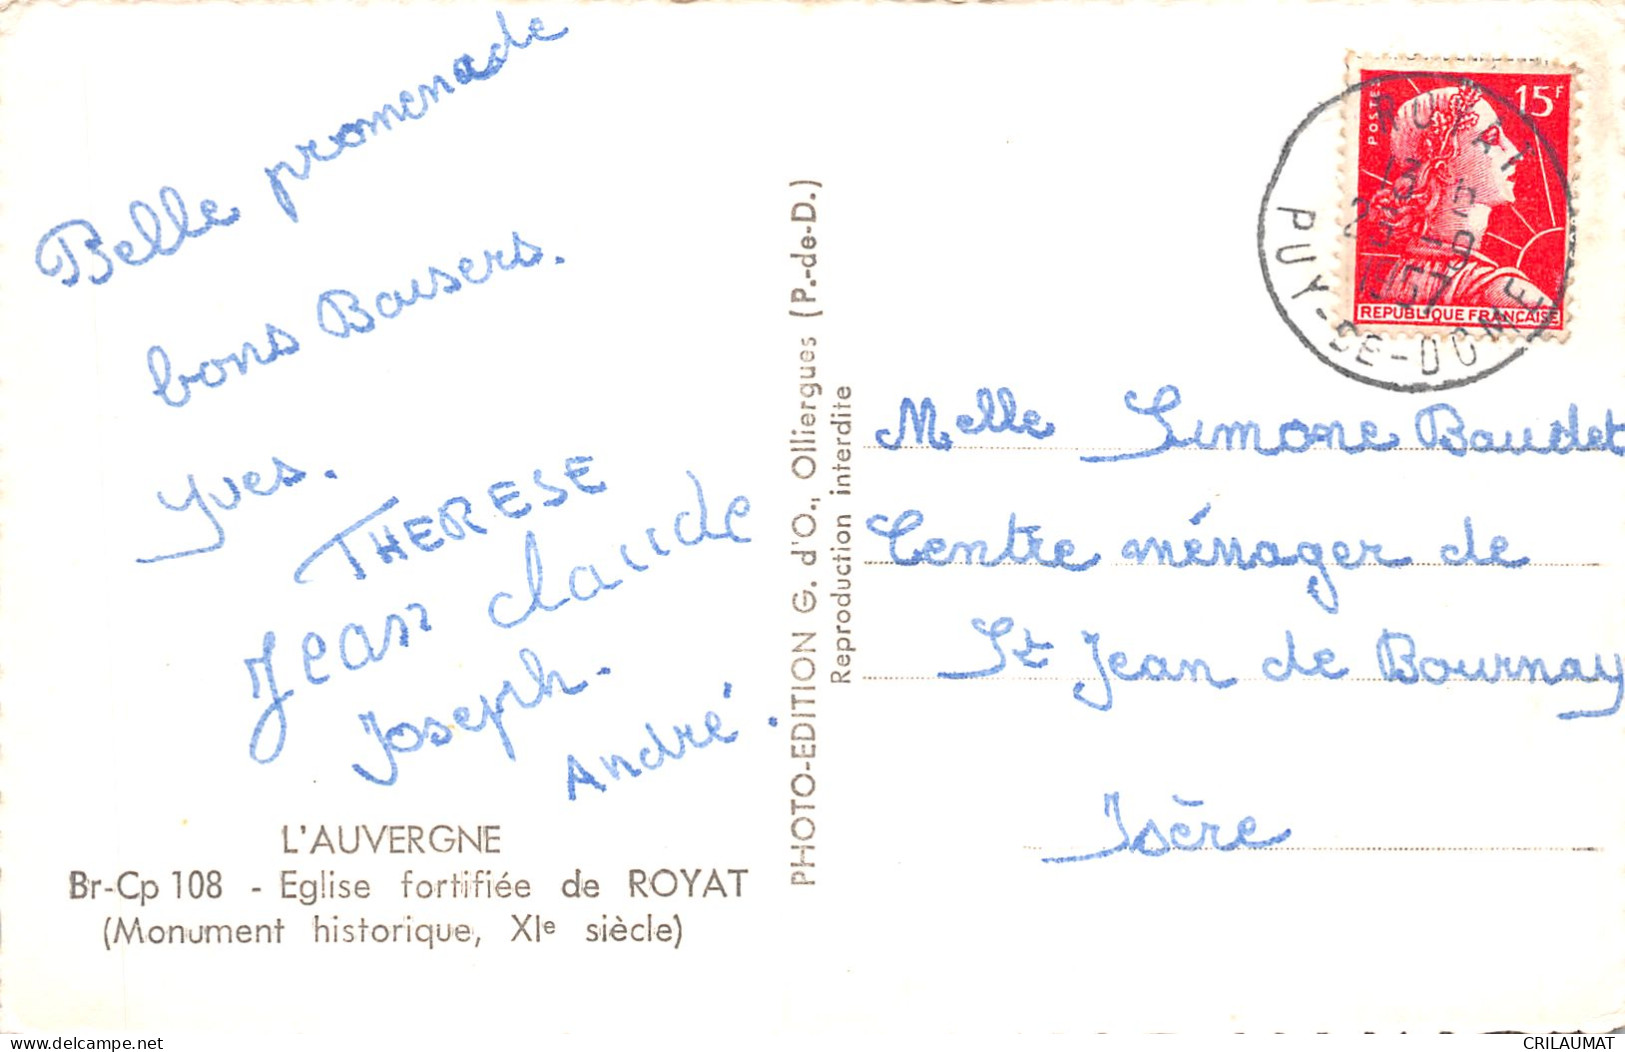 Belle promenade
bons Baisers.
Yves.
THERESE
Jean claude
Joseph.
André.
L'AUVERGNE
Br-Cp 108 - Eglise fortifiée de ROYAT
(Monument historique, XIe siècle)
PHOTO-EDITION G. d'O., Olliergues (P.-de-D.)
Reproduction interdite
POSTES
15F
REPUBLIQUE FRANÇAISE
ROYAT
1957
PUY-DE-DOME
Melle Simone Baudet
Centre ménager de
St Jean de Bournay
Isère
delcampe.net
CRILAUMAT